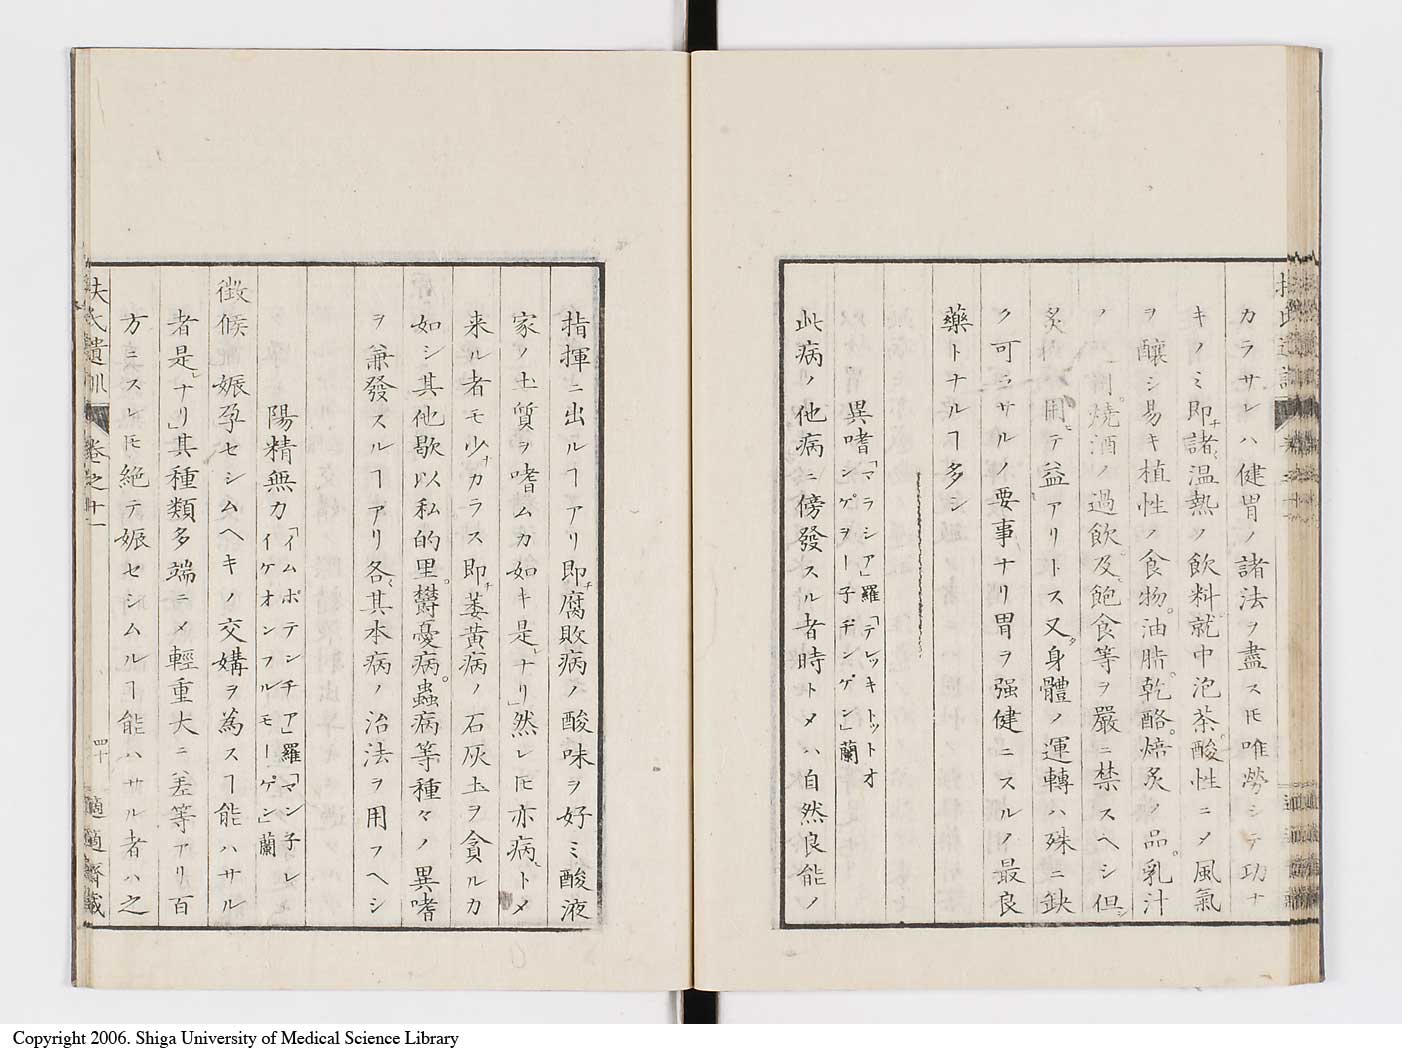 カラサレハ健胃ノ諸法ヲ盡スㇳモ唯勞シテ功ナ
キノミ即チ諸温熱ノ飲料就中泡茶酸性ニメ風氣
ヲ釀シ易キ植性ノ食物。油脂。乾酪。焙炙ノ品。乳汁
燒酒ノ過飲。及飽食等ヲ嚴ニ禁スヘシ但シ
炙 用テ益アリトス又身體ノ運轉ハ殊ニ缺
ク可ラサルノ要事ナリ胃ヲ强健ニスルノ最良
藥トナルヿ多シ
異嗜「マラシア」羅「テレッキトットオ
ンゲヲー子ヂンゲン」蘭
此病ノ他病ニ傍發スル者時トメハ自然良能ノ
指揮ニ出ルヿアリ即チ腐敗病ノ酸味ヲ好ミ酸液
家ノ土質ヲ嗜ムカ如キ是ナリ」然レㇳモ亦病トメ
来ル者モ少ナカラス即チ萎黄病ノ石灰土ヲ貪ルカ
如シ其他歇以私的里。欝憂病。蟲病等種々ノ異嗜
ヲ兼發スルヿアリ各其本病ノ治法ヲ用フヘシ
陽精無力「イムポテンチア」羅「マン子レ
イケオンフルモーゲン」蘭
徴候 娠孕セシムヘキノ交媾ヲ為スヿ能ハサル
者是ナリ」其種類多端ニメ輕重大ニ差等アリ百
方ニスレㇳモ絶テ娠セシムルヿ能ハサル者ハ之
扶氏遺訓 卷之十一 四十 適適齋藏
Copyright 2006. Shiga University of Medical Science Library